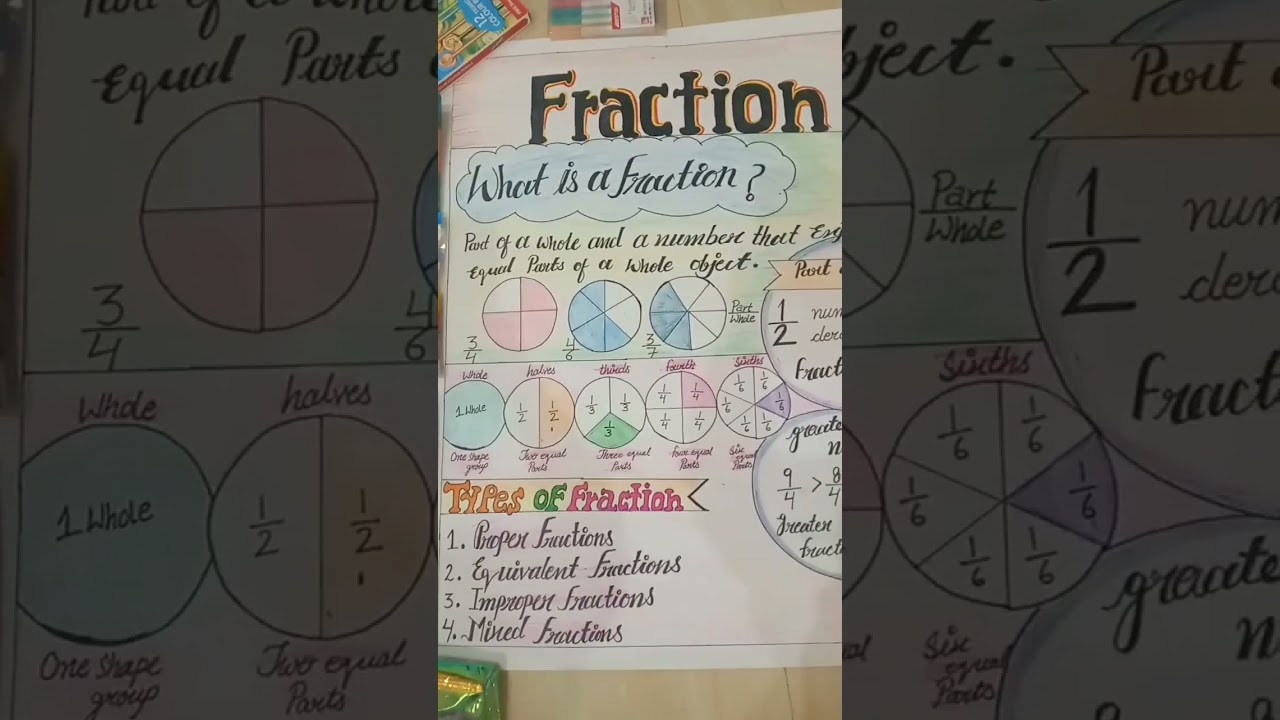 12
COLOUR
Fraction
What is a Fraction?
Part of a whole and a number that
Equal Parts of a whole object.
3/4
4/6
3/7
Part/Whole
Part
1/2
num
Fract
Whole halves thirds fourth Sixths
1 Whole
1/2 1/2
1/3 1/3 1/3
1/4 1/4 1/4 1/4
1/6 1/6 1/6 1/6 1/6 1/6
One shape group
Two equal Parts
Three equal Parts
four equal Parts
Six equal Parts
greate
n
9/4 > 8/4
greater
fract
Types of Fraction
1. Proper Fractions
2. Equivalent Fractions
3. Improper Fractions
4. Mixed Fractions